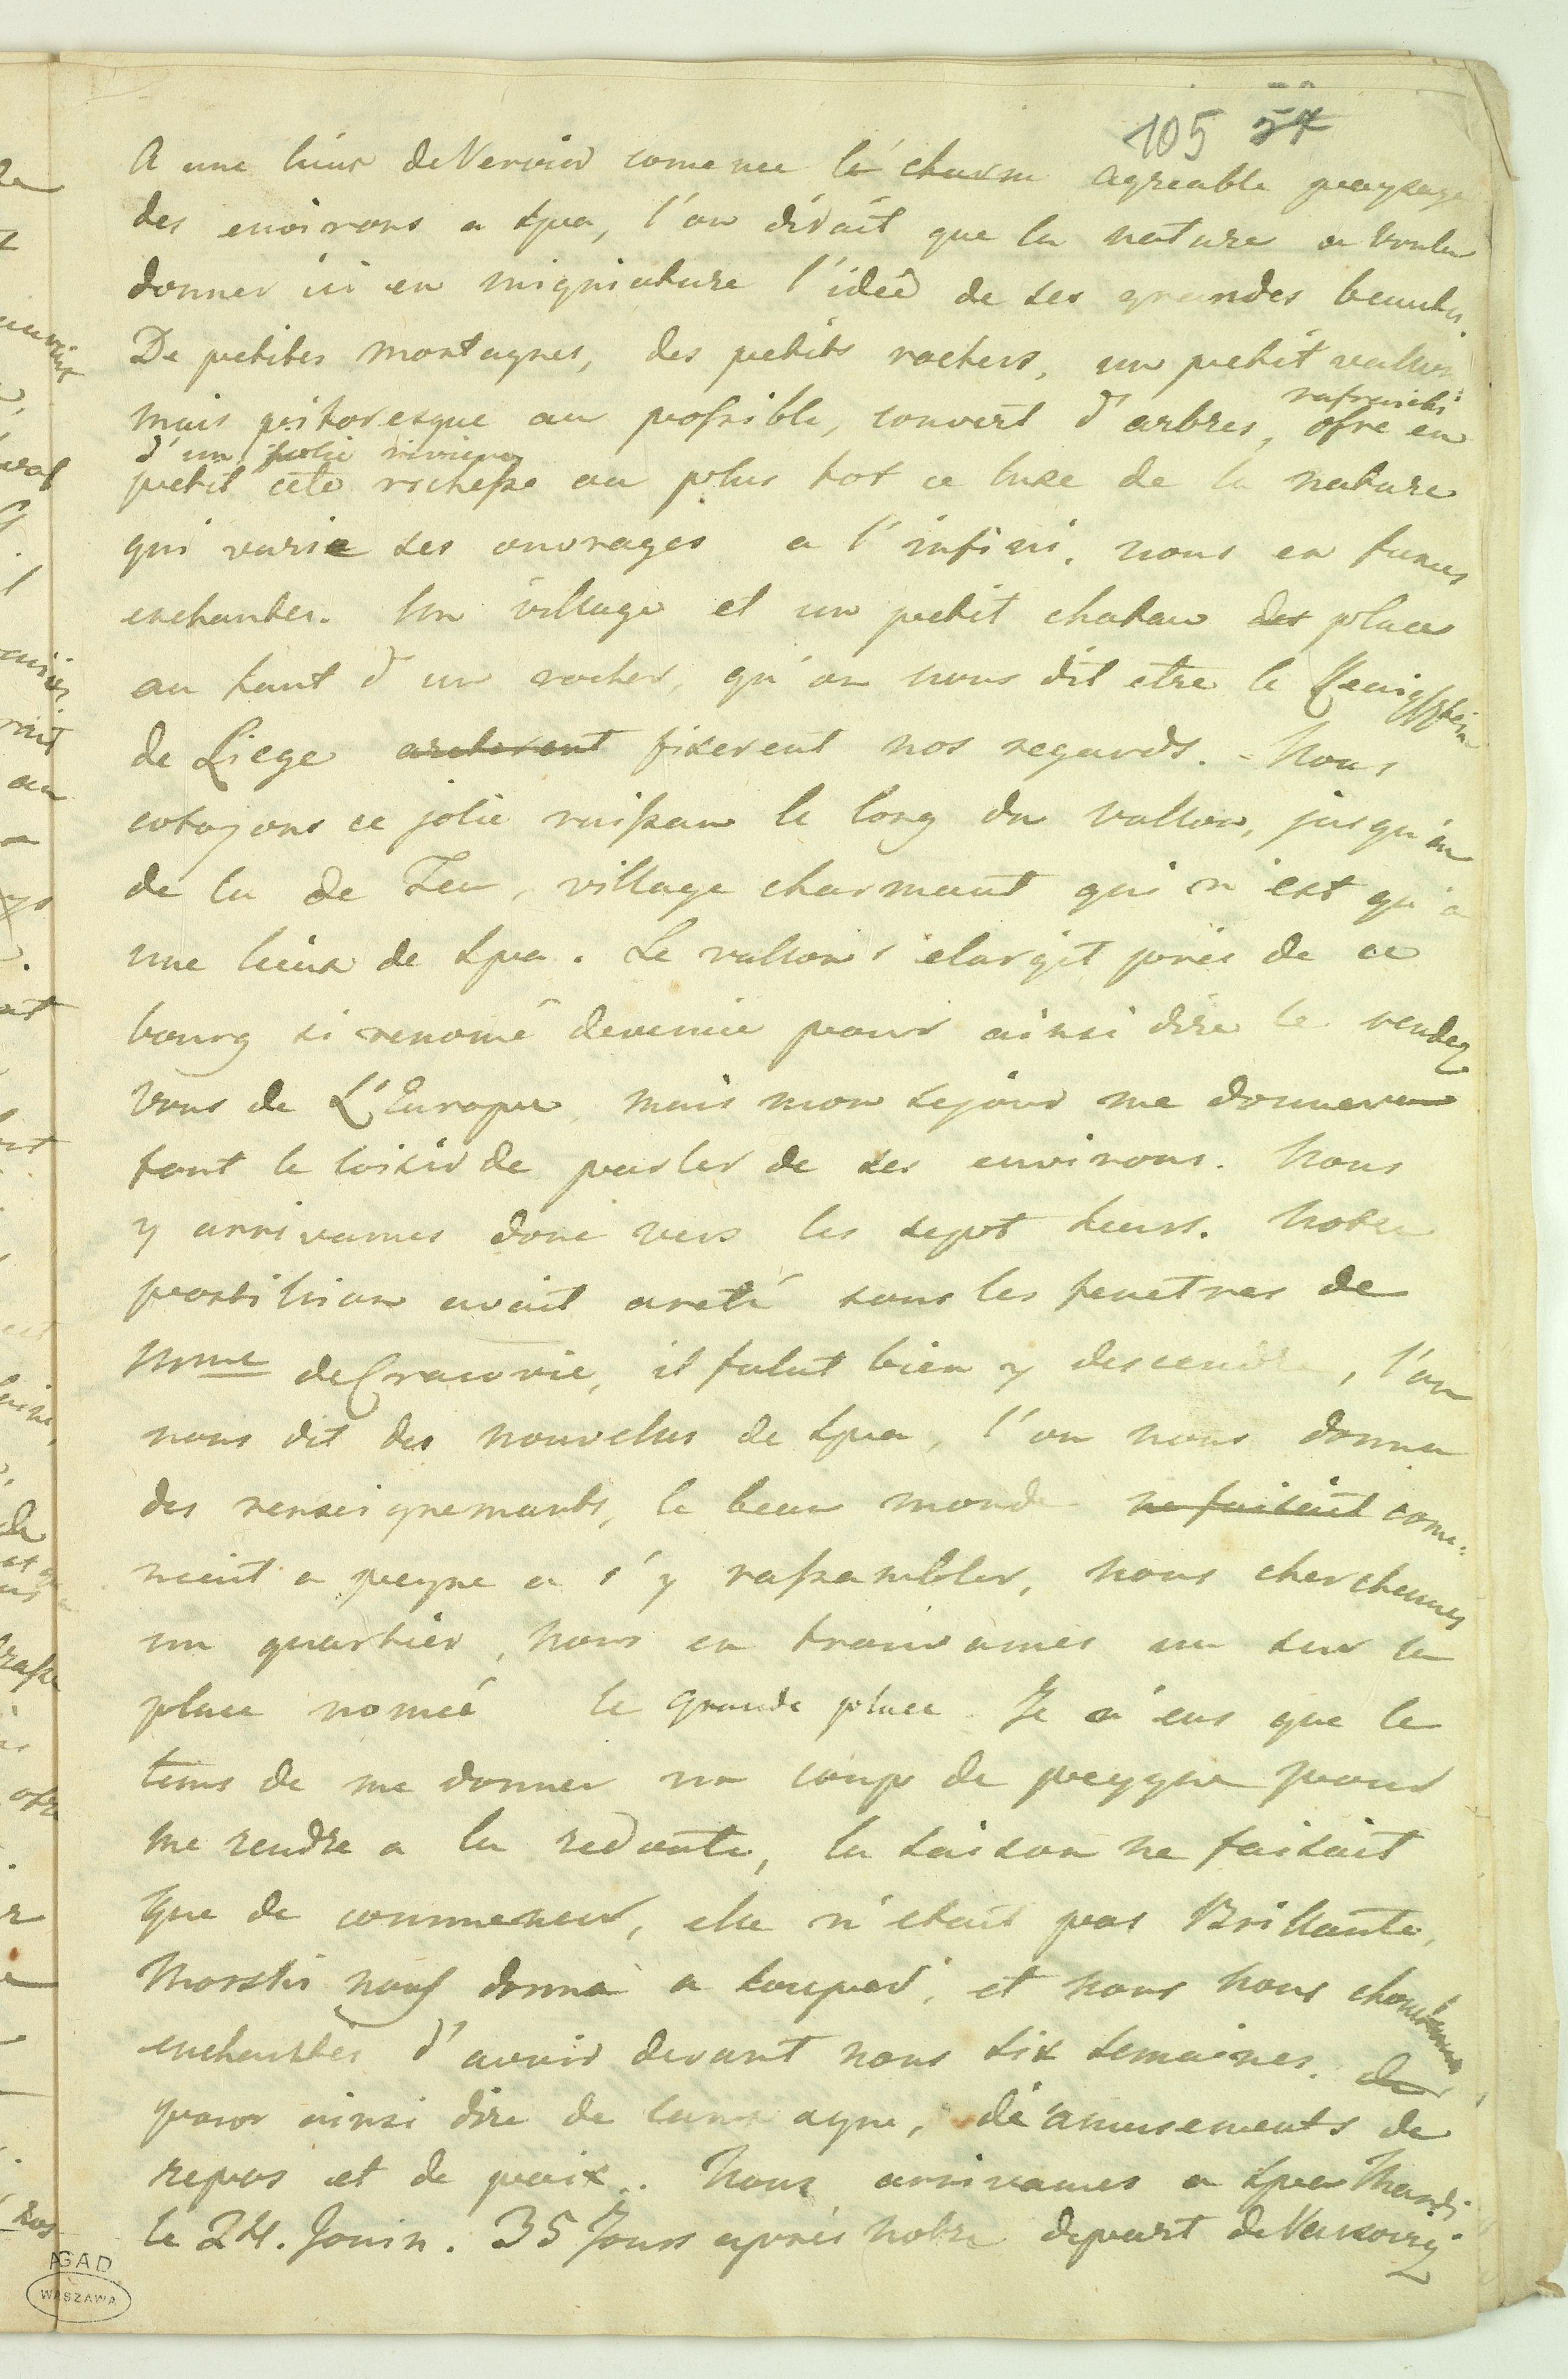 105 57
A une lieue de Vervier comence le charm agreable paysage
des environs a Spa, l'on dirait que la nature a voulu
donner ici en migniature l'ideê de ses grandes beautés.
De petites montagnes, des petits rochers, un petit vallon
mais pitoresque au possible, couvert d'arbres, rafraichi
d'un jolie riviere
ofre en
petit cete richesse ou plus tot ce luxe de la nature
qui varie ses ouvrages a l'infini. nous en fumes
enchantes. Un village et un petit chatau des place
au haut d'un rocher, qu'on nous dit etre le Kenigsstein
de Liege areterent fixerent nos regards. - Nous
cotoyons ce jolie ruissau le long du vallon, jusqu'au
de la de Teu, village charmant qui n'est qu'a
une lieue de Spa. Le vallon s'elargit près de ce
bourg si renomé devenue pour ainsi dire le rendez
vous de L'Europe, mais mon sejour me donnera
tout le loisir de parler de ses environs. Nous
y arrivames donc vers les sept heurs. Notre
postilion avait areté sous les fenetres de
Mme de Cracovie, il falut bien y descendre, l'on
nous dit des nouvelles de Spa, l'on nous donna
des renseignemants, le beau monde ne faisait come:
ncait a peyne a s'y rassambler, nous cherchames
un quartier, nous en trouvames un sur la
place nomeé la grande place. Je n'eus que le
tems de me donner un coup de peygne pour
me rendre a la redoute, la saison ne faisait
que de commencer, elle n'etait pas Brillante,
Morski nous donna a souper, et nous nous
enchantés d'avoir devant nous six semaines. de
pour ainsi dire de campagne, de amusements de
repos et de paix.. Nous arrivames a Spa Mardi
le 24. Jouin. 35 Jours après notre depart de Varsovie
AGAD
WARSZAWA